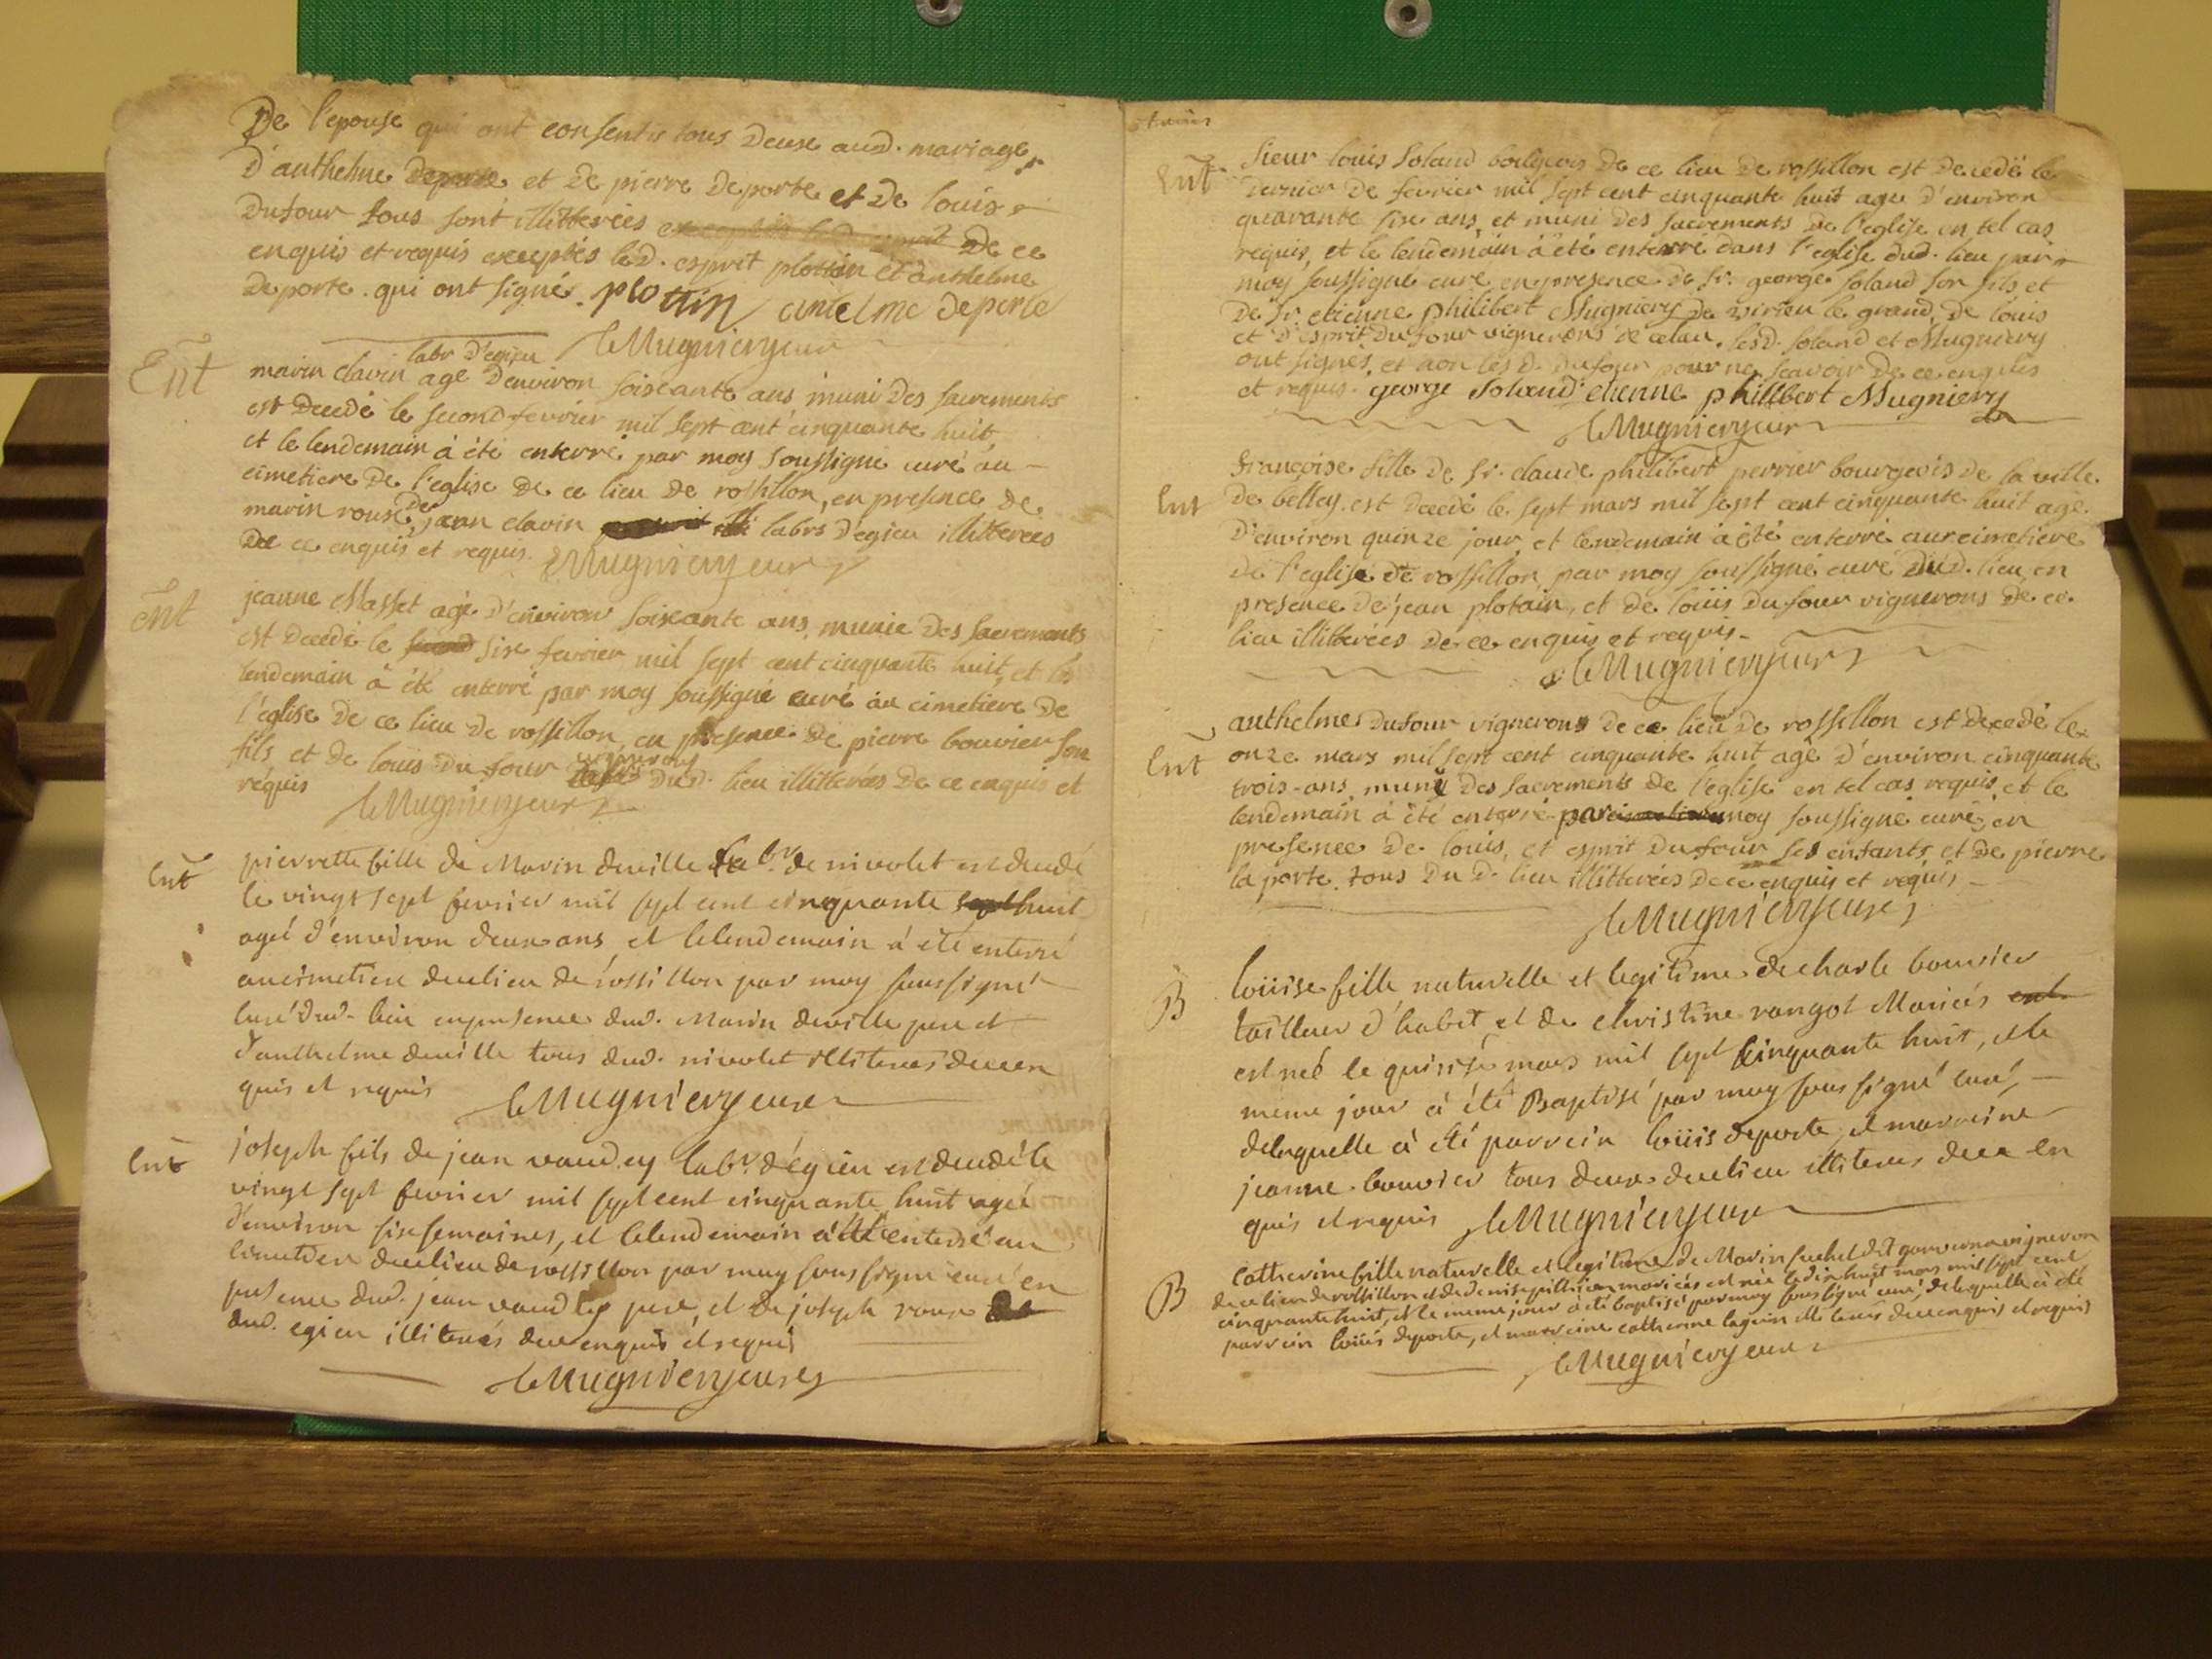 De l'epouse qui ont consentis tous deux aud. mariage
d'anthelme deporte et de pierre deporte et de louis
dufour tous sont illitterées de ce
enquis et requis exceptés led. esprit plottin et anthelme
deporte qui ont signé. plottin antelme deporte
Mugniery curé
labr d'egieu
Ent marin clavin agé d'environ soixante ans muni des sacrements
est decedé le second fevrier mil sept cent cinquante huit,
et le lendemain à été enterré par moy soussigné curé au
cimetiere de l'eglise de ce lieu de rossillon, en presence de
marin roux, de jean clavin labrs d'egieu illitterées
de ce enquis et requis. Mugniery curé
Ent jeanne Masset agé d'environ soixante ans, munie des sacrements
est decedé le second six fevrier mil sept cent cinquante huit, et le
lendemain à été enterré par moy soussigné curé au cimetiere de
l'eglise de ce lieu de rossillon en presence de pierre bouvier son
vigneron
fils, et de louis du four dud. lieu illitterées de ce enquis et
requis Mugniery curé
Ent pierrette fille de Marin deville labr. de nivolet est decedé
le vingt sept fevrier mil sept cent cinquante sept huit
agé d'environ deux ans, et le lendemain à été enterré
au cimetiere de ce lieu de rossillon par moy soussigné
curé dud. lieu en presence dud. Marin deville pere et
d'anthelme deville tous dud. nivolet illiterés de ce en
quis et requis Mugniery curé
Ent joseph fils de jean vaudey labr. d'égieu est decedé le
vingt sept fevrier mil sept cent cinquante huit agé
d'environ six semaines, et le lendemain à été enterré au
cimetiere de ce lieu de rossillon par moy soussigné curé en
presence dud. jean vaudey pere, et de joseph roux
dud. egieu illiterés de ce enquis et requis
Mugniery curé
Ent Sieur louis Soland bourgeois de ce lieu de rossillon est decedé le
dernier de fevrier mil sept cent cinquante huit agé d'environ
quarante six ans, et muni des sacrements de l'eglise en tel cas
requis, et le lendemain à été enterré dans l'eglise dud. lieu par
moy soussigné curé en presence de sr. george soland son fils et
de sr etienne philibert Mugniery de virieu le grand, de louis
et d'esprit Dufour vignerons de ce lieu. lesd. soland et Mugniery
ont signés, et non lesd. dufour pour ne scavoir de ce enquis
et requis. george Soland etienne phillbert Mugniery
Mugniery curé
françoise fille de sr. claude philibert perrier bourgeois de la ville
Ent de belley est decedé le sept mars mil sept cent cinquante huit agé
d'environ quinze jour et lendemain à été enterré au cimetiere
de l'eglise de rossillon par moy soussigné curé dud. lieu, en
presence de jean plotain, et de loüis dufour vignerons de ce
lieu illitterées de ce enquis et requis
Mugniery curé
anthelme dufour vigneron de ce lieu de rossillon est decedé le
Ent onze mars mil sept cent cinquante huit agé d'environ cinquante
trois ans, muni des sacrements de l'eglise en tel cas requis, et le
lendemain à été enterré par moy soussigné curé, en
presence de louis, et esprit dufour ses enfants et de pierre
la porte tous du d. lieu illitterées de ce enquis et requis
Mugniery curé
B loüise fille naturelle et legitime de charle bouvier
tailleur d'habit et de christine rangot Mariés
est né le quinse mars mil sept cinquante huit, et le
meme jour à été Baptisé par moy sous signé curé,
de laquelle à été parrein loüis deporte, et marreine
jeanne bouvier tous deux de ce lieu illiterés de ce en
quis et requis Mugniery curé
B Catherine fille naturelle et legitime de Marin suchet dit gouverna vigneron
de ce lieu de rossillon et de denise pillion mariés est née le dix huit mars mil sept cent
cinquante huit, et le meme jour à été baptisé par moy sous signé curé, de laquelle à été
parrein loüis deporte, et marreine catherine laguin illiterés de ce enquis et requis
Mugniery curé